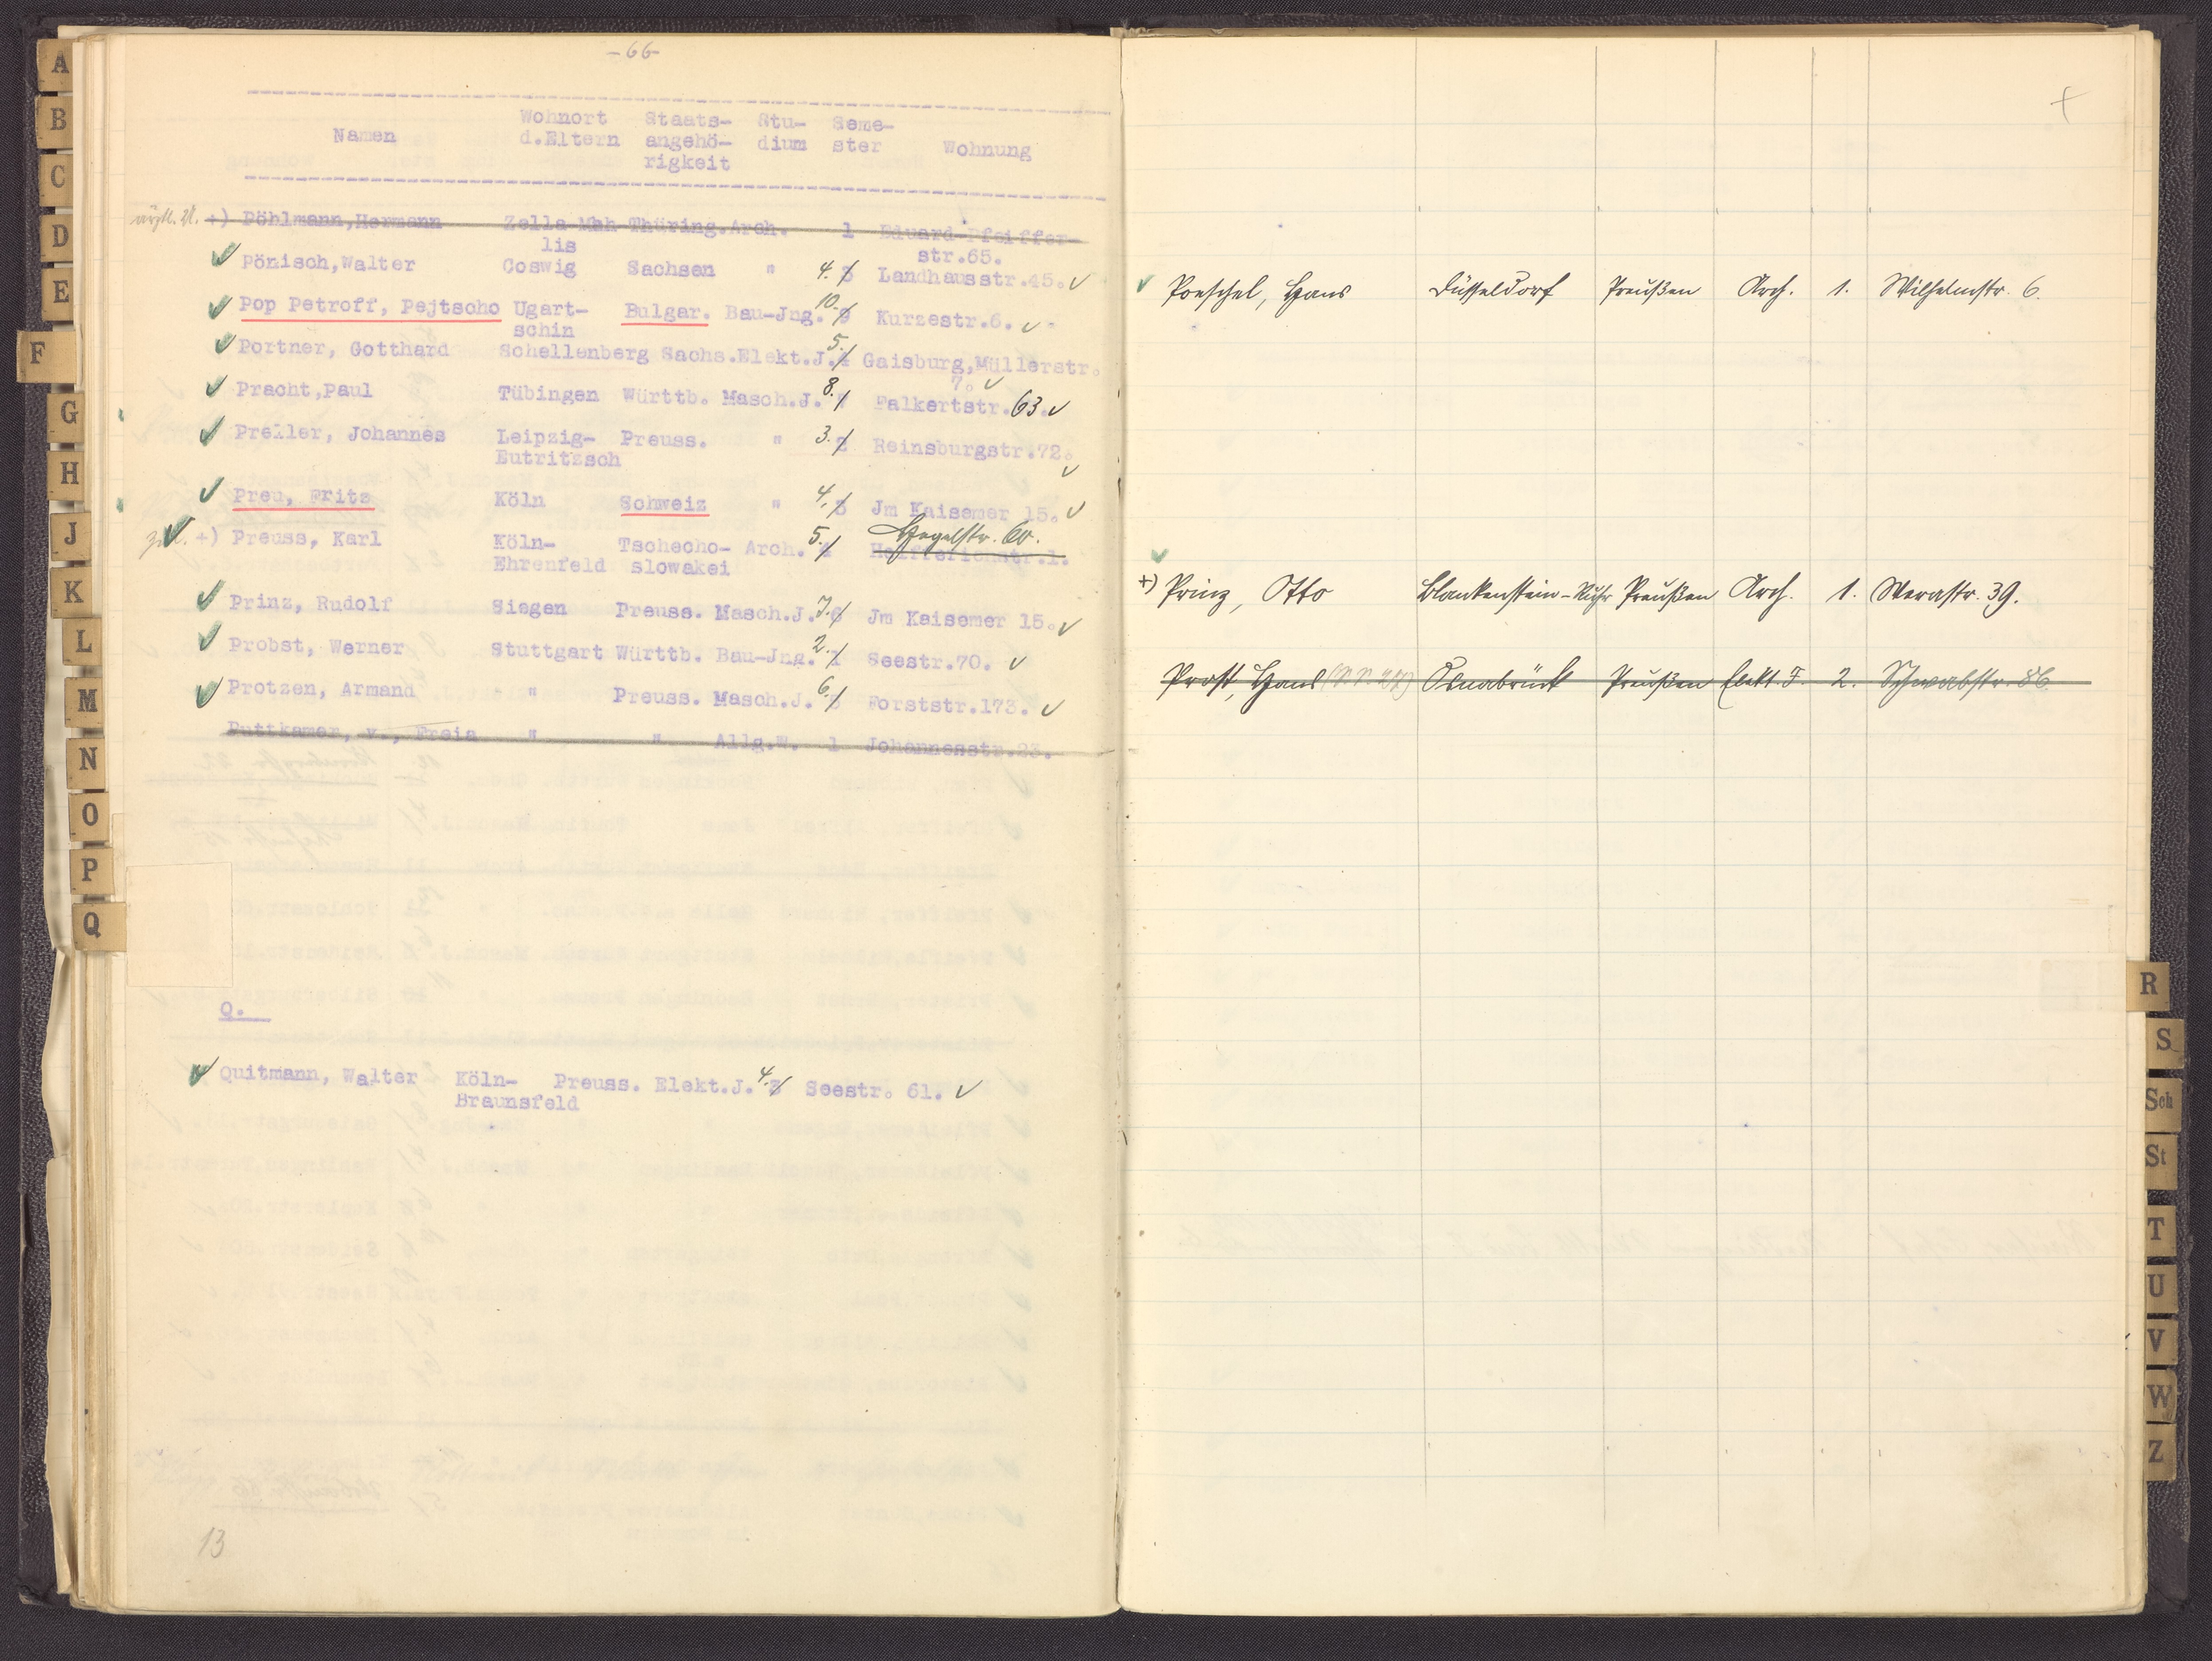 -66-
Namen Wohnort d.Eltern Staats-angehö-rigkeit Stu-dium Seme-ster Wohnung
ärztl. U. +) Pöhlmann,Hermann Zella-Meh Thüring. Arch. 1 Eduard-Pfeiffer-
lis str.65.
Pönisch,Walter Coswig Sachsen " 4. 3 Landhausstr.45.
Pop Petroff, Pejtscho Ugart- Bulgar. Bau-Jng. 10. 9 Kurzestr.6.
schin
Portner, Gotthard Schellenberg Sachs. Elekt.J. 5. 4 Gaisburg,Müllerstr.
7.
Pracht,Paul Tübingen Württb. Masch.J. 8. Falkertstr. 63.
Preller, Johannes Leipzig- Preuss. " 3. 2 Reinsburgstr.72.
Eutritzsch
Preu, Fritz Köln Schweiz " 4. 3 Jm Kaisemer 15.
+) Preuss, Karl Köln- Tschecho- Arch. 5. 4 Hegelstr. 60. Helfferichstr.1.
Ehrenfeld slowakei
Prinz, Rudolf Siegen Preuss. Masch.J. 7. 6 Jm Kaisemer 15.
Probst, Werner Stuttgart Württb. Bau-Jng. 2. 1 Seestr.70.
Protzen, Armand " Preuss. Masch.J. 6. 5 Forststr.173.
Puttkamer, v., Freia " " Allg.W. 1 Johannesstr.23.
Q.
Quitmann, Walter Köln- Preuss. Elekt.J. 4. 3 Seestr. 61.
Braunsfeld
13
Poeschel, Hans Düsseldorf Preußen Arch. 1. Wilhelmstr. 6.
+) Prinz, Otto Blankenstein-Ruhr Preußen Arch. 1. Werastr. 39.
Prost, Hans Osnabrück Preußen Elekt. J. 2. Schwabstr. 86
A
B
C
D
E
F
G
H
J
K
L
M
N
O
P
Q
R
S
Sch
St
T
U
V
W
Z